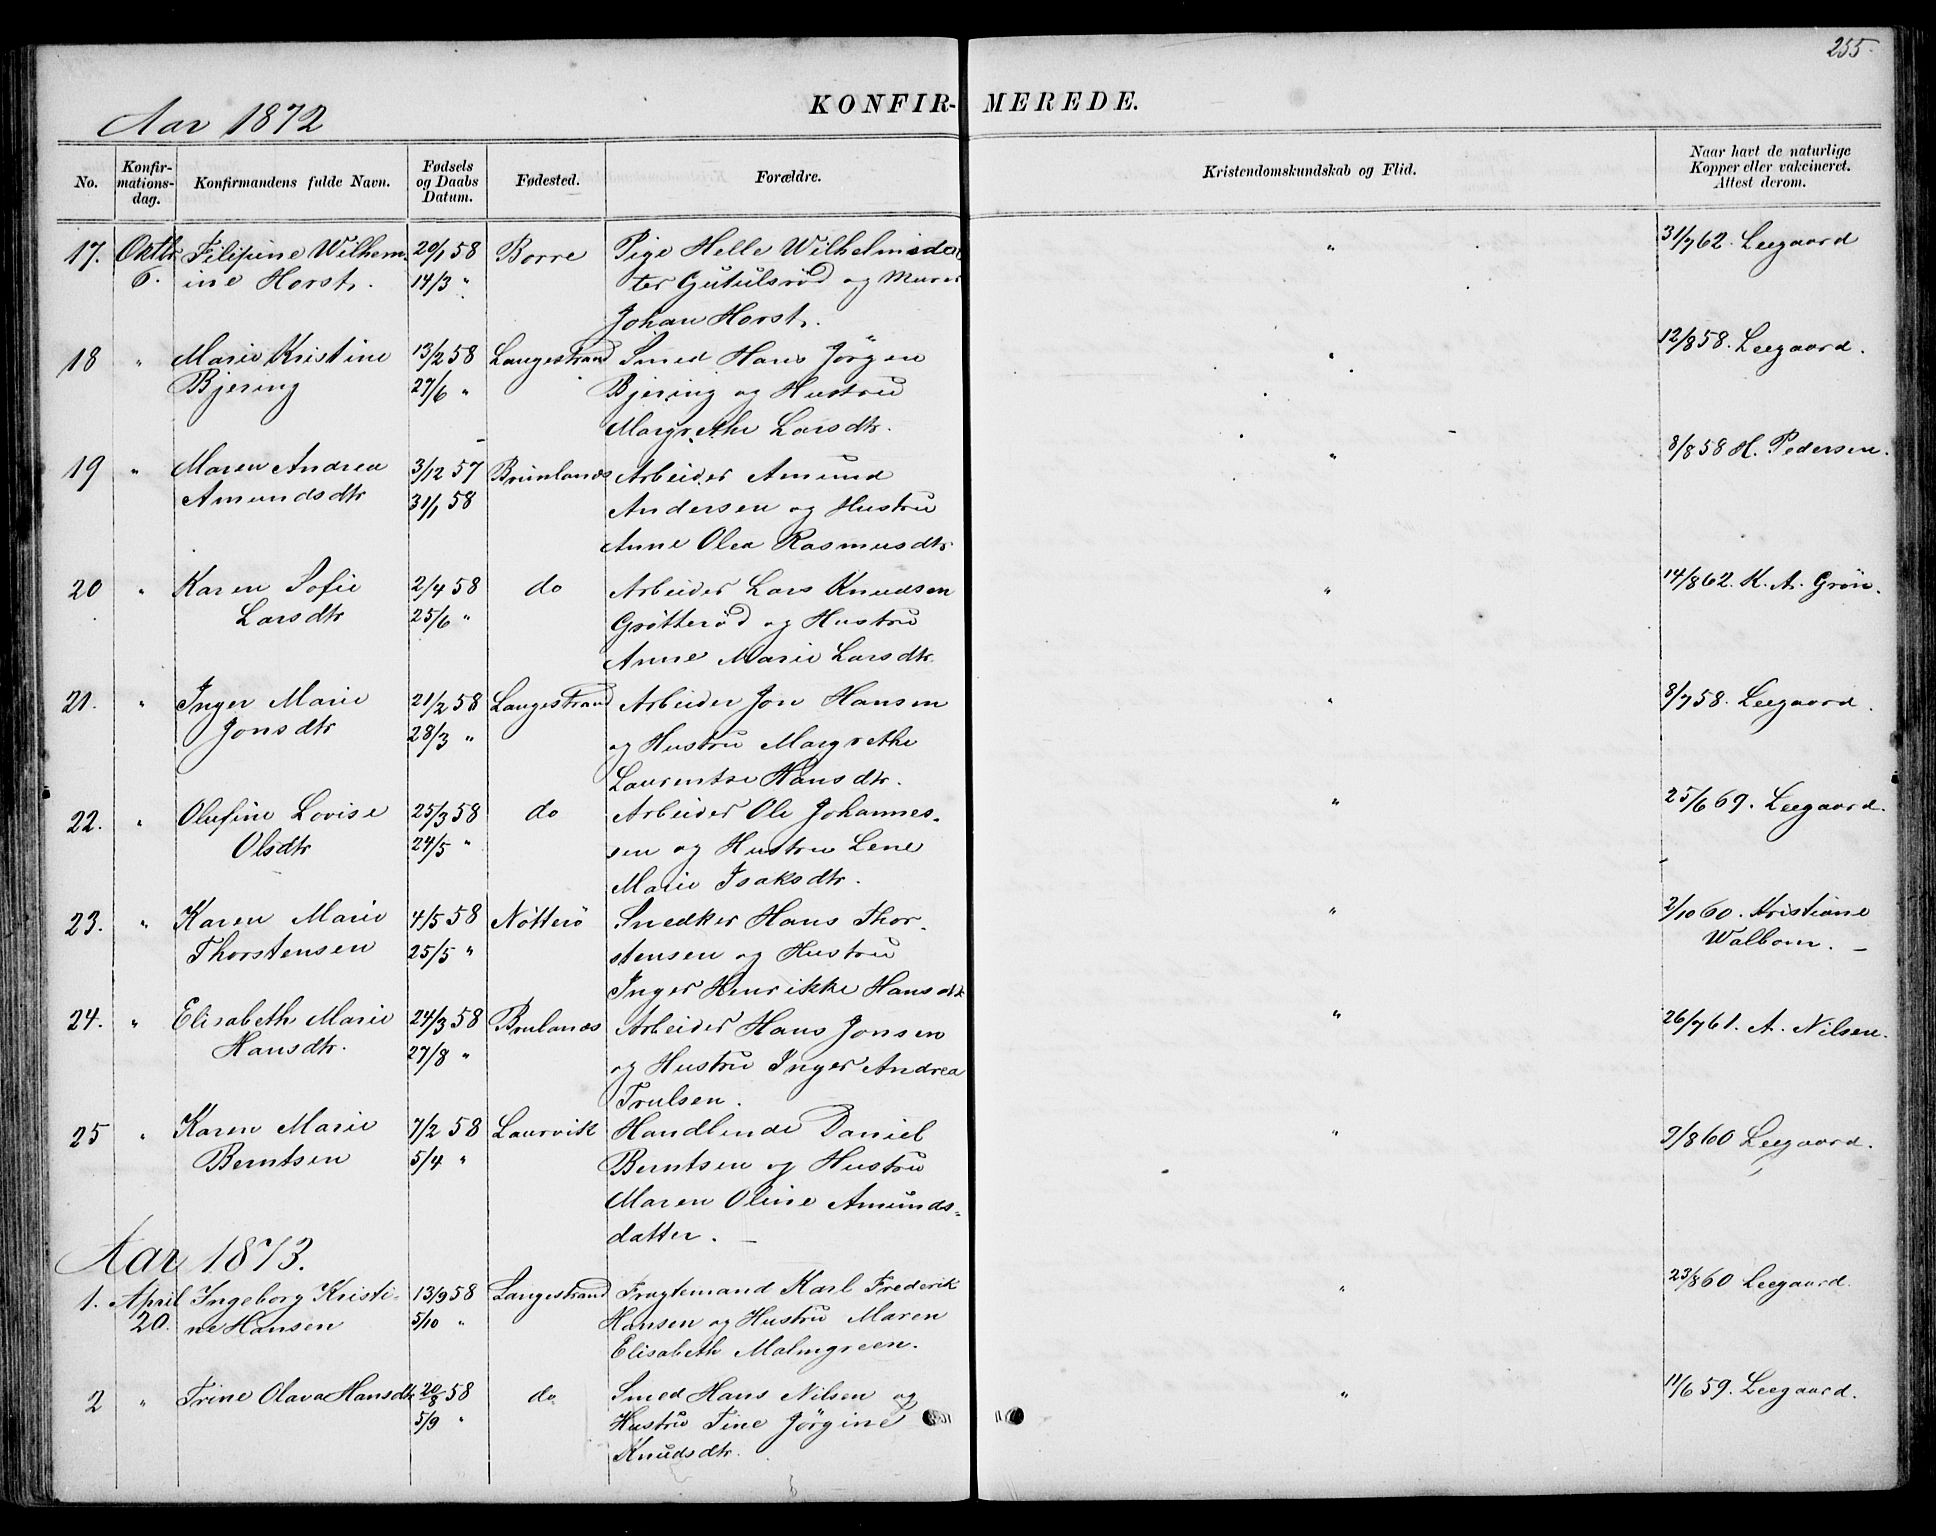 255.
Aar 1872
KONFIR- MEREDE.
No.
Konfir-
mations-
dag.
Konfirmandens fulde Navn.
Fødsels
og Daabs
Datum.
Fødested.
Forældre.
Kristendomskundskab og Flid.
Naar havt de naturlige
Kopper eller vakcineret.
Attest derom.
17. Oktbr Filipine Wilhem 29/1 58 Borre Pige Helle Wilhelmsda " 31/7 62. Leegaard
6. ine Horst. 14/3 " ter Gutulsröd og Murer
Johan Horst.
18 " Marie Kristine 13/2 58 Langestrand Smed Hans Jörgen " 12/8 58. Leegaard.
Bjering 27/6 " Bjering og Hustru
Margrethe Larsdtr.
19 " Maren Andrea 3/12 57 Brunlanæs Arbeider Amund " 8/8 58 H. Pedersen.
Amundsdtr 31/1 58 Andersen og Hustru
Anne Olea Rasmusdtr
20 " Karen Sofie 2/4 58 do Arbeider Lars Knudsen " 14/8 62. K. A. Grön.
Larsdtr 25/6 " Grötteröd og Hustru
Anne Marie Larsdtr.
21. " Inger Marie 21/2 58 Langestrand Arbeider Jon Hansen " 8/7 58. Leegaard.
Jonsdtr 28/3 " og Hustru Margrethe
Laurentze Hansdtr.
22. " Olufine Lovise 25/3 58 do Arbeider Ole Johannes- " 25/6 69. Leegaard.
Olsdtr 24/5 " sen og Hustru Lene
Marie Isaksdtr.
23. " Karen Marie 4/5 58 Nötterö Snedker Hans Thor- " 2/10 60. Kristiane
Thorstensen 25/5 " stensen og Hustru Walbom.
Inger Henrikke Hansdt
24. " Elisabeth Marie 24/3 58 Brulanæs Arbeider Hans Jonsen " 26/7 61. A. Nilsen.
Hansdtr. 27/8 " og Hustru Inger Andrea
Trulsen.
25 " Karen Marie 7/2 58 Laurvik Handlende Daniel " 9/8 60 Leegaard.
Berntsen 5/4 " Berntsen og Hustru
Maren Oline Amunds-
datter.
Aar 1873.
1. April Ingeborg Kristi- 13/9 58 Langestrand Fragtemand Karl Frederik " 23/8 60 Leegaard.
20. ne Hansen 5/10 " Hansen og Hustru Maren
Elisabeth Malmgreen.
2 " Trine Olava Hansdtr 20/8 58 do Smed Hans Nilsen og " 11/6 59. Leegaard.
5/9 " Hustru Tine Jörgine
Knudsdtr.